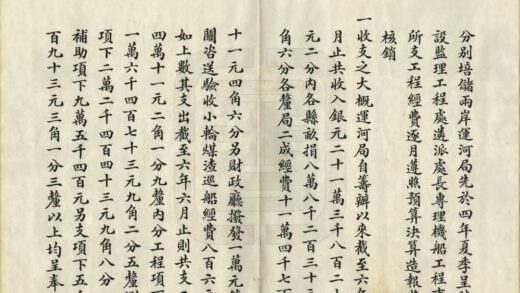 分別培儲兩岸運河局先於四年夏季呈
設監理工程處遴派處長專理機船工程
所支工程經費逐月遵照預算決算造報
核銷
一收支之大概運河局自籌辦以來截至六年
月止共收入銀元二十一萬三千八百二十
元二分內各縣畝捐八萬八千二百三十
角六分各釐局二成經費十一萬四千七
十一元四角六分另財政廳撥發一萬元
關咨送驗收小輪煤渣巡船經費八百六
如上數其支出截至六年六月止則共支
四萬十一元二角一分九釐內分工程項
一萬六千四百七十三元九角二分五釐
項下二萬二千四百四十三元九角八分
補助項下九萬五千四百元另支項下五
百九十三元三角一分三釐以上均呈奉